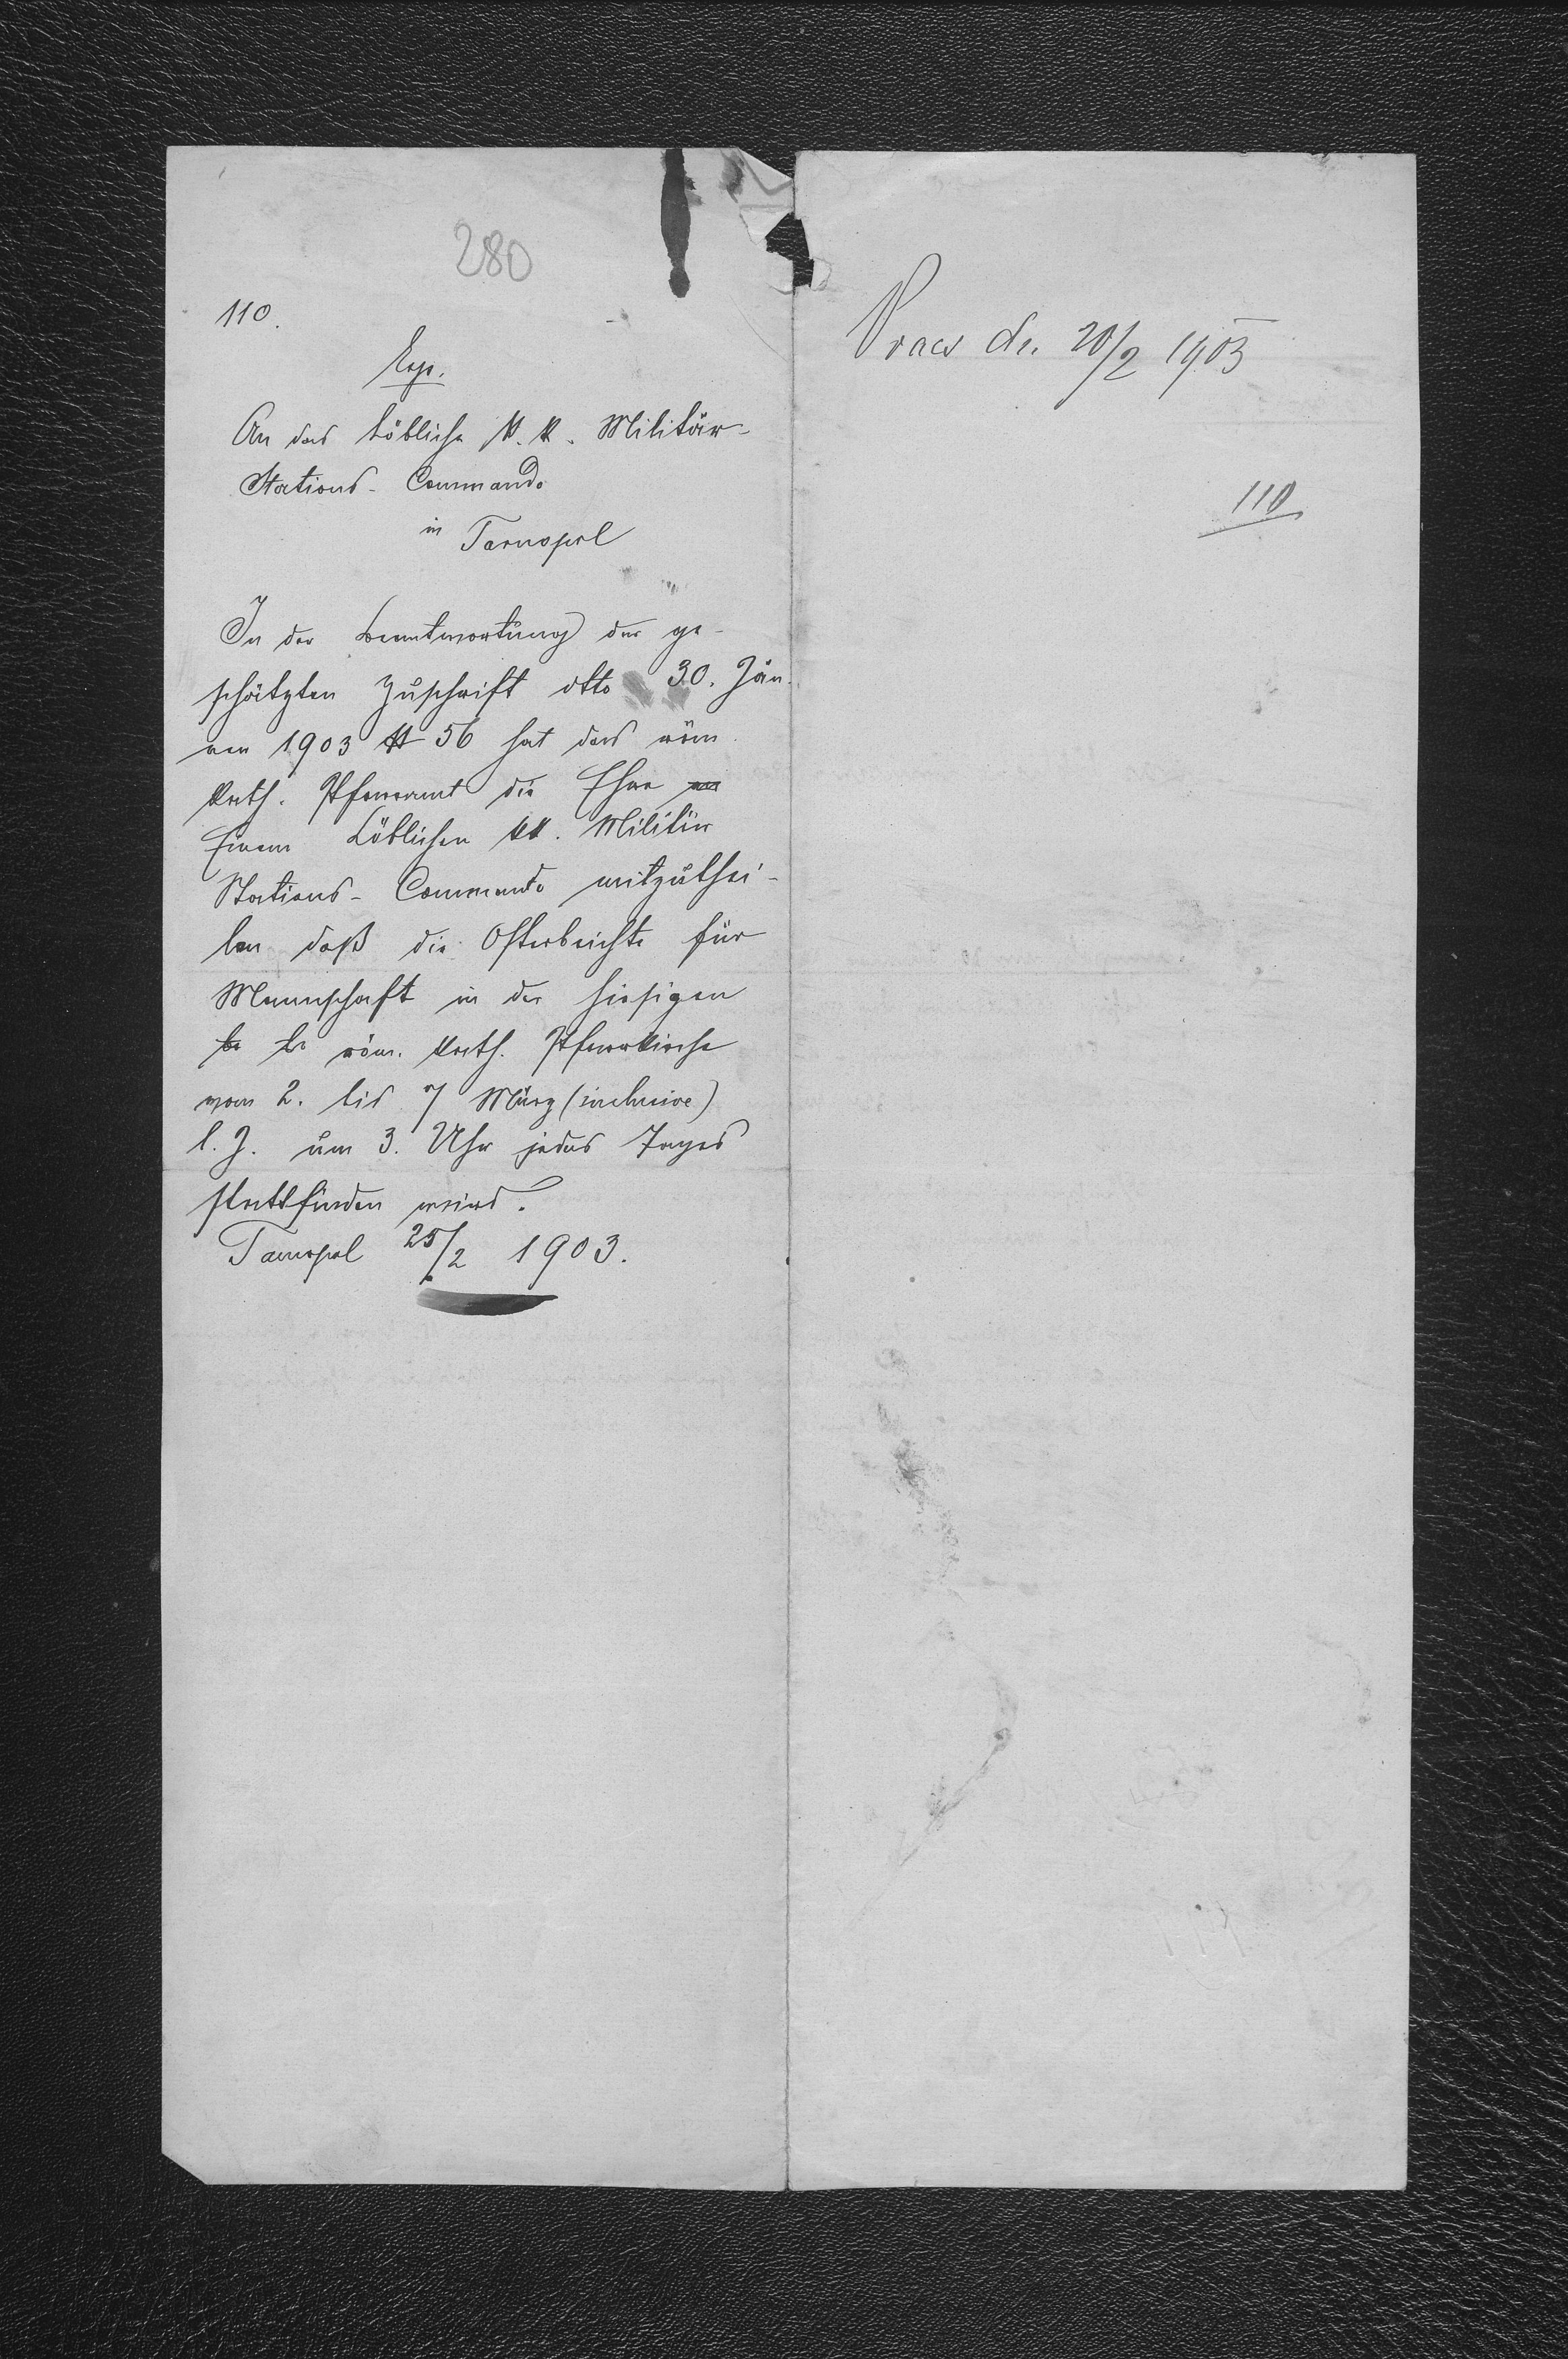 280
110.
Exp.
An das löbliche k. k. Militär-
Stations-Commando
in Tarnopol
In der Beantwortung der ge-
schätzten Zuschrift dtto 30. Jän-
ner 1903 № 56 hat das röm.
kath. Pfarramt die Ehre
Einem Löblichen kk. Militär
Stations-Commando mitzuthei-
len daß die Osterbeichte für
Mannschaft in der hiesigen
röm. kath. Pfarrkirche
vom 2. bis 7 März (inclusive)
l. J. um 3. Uhr jedes Tages
stattfinden wird.
Tarnopol 25/2 1903.
Praes de. 20/2 1903
110